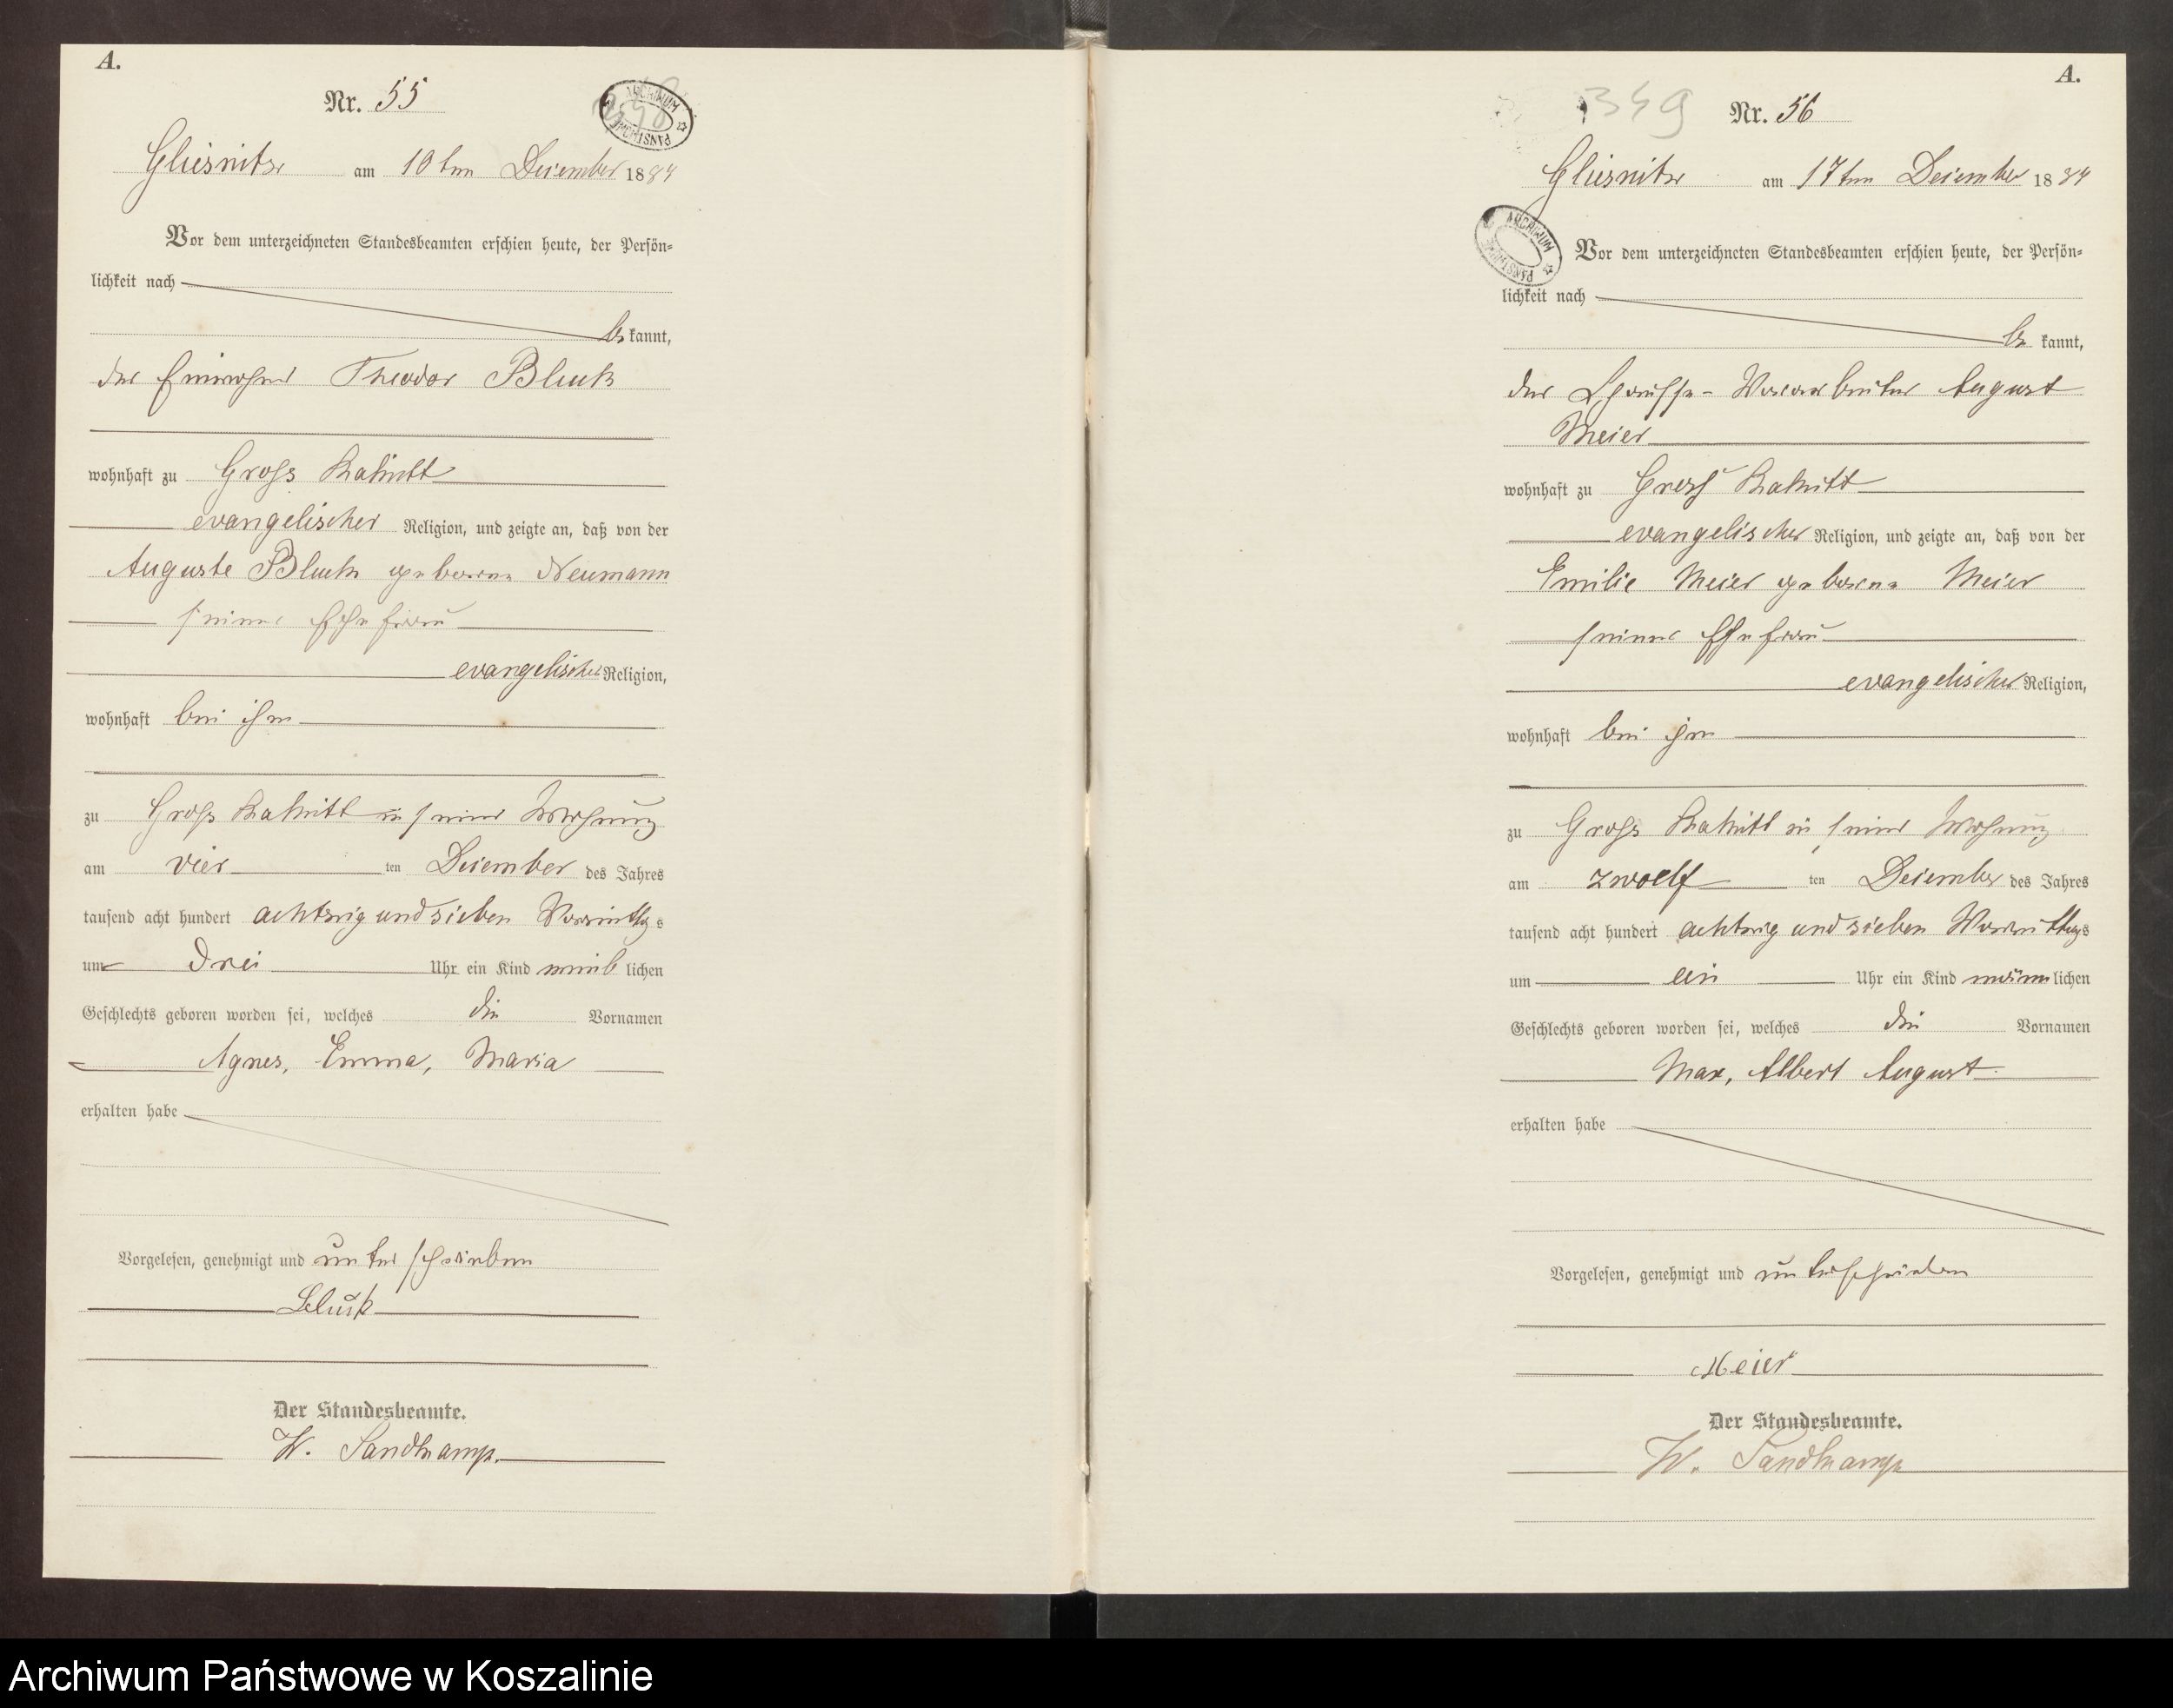 A.
Nr. 55
ARCHIWUM PAŃSTWOWE
Gliesnitz am 10ten Dezember 1887
Vor dem unterzeichneten Standesbeamten erschien heute, der Persön=
lichkeit nach
be kannt,
der Einwohner Theodor Bluck
wohnhaft zu Gross Rakitt
evangelischer Religion, und zeigte an, daß von der
Auguste Bluck geborene Neumann
seiner Ehefrau
evangelischer Religion,
wohnhaft bei ihm
zu Gross Rakitt in seiner Wohnung
am vier ten Dezember des Jahres
tausend acht hundert achtzig und sieben Vormittags
um drei Uhr ein Kind weib lichen
Geschlechts geboren worden sei, welches die Vornamen
Agnes, Emma, Maria
erhalten habe
Vorgelesen, genehmigt und unterschrieben
Bluck
Der Standesbeamte.
W. Sandkamp.
A.
349
Nr. 56
Gliesnitz am 17ten Dezember 1887
ARCHIWUM PAŃSTWOWE
Vor dem unterzeichneten Standesbeamten erschien heute, der Persön=
lichkeit nach
be kannt,
der Vorarbeiter August
Meier
wohnhaft zu Gross Rakitt
evangelischer Religion, und zeigte an, daß von der
Emilie Meier geborene Meier
seiner Ehefrau
evangelischer Religion,
wohnhaft bei ihm
zu Gross Rakitt in seiner Wohnung
am zwoelf ten Dezember des Jahres
tausend acht hundert achtzig und sieben Vormittags
um ein Uhr ein Kind männ lichen
Geschlechts geboren worden sei, welches die Vornamen
Max, Albert August
erhalten habe
Vorgelesen, genehmigt und unterschrieben
Meier
Der Standesbeamte.
W. Sandkamp
Archiwum Państwowe w Koszalinie